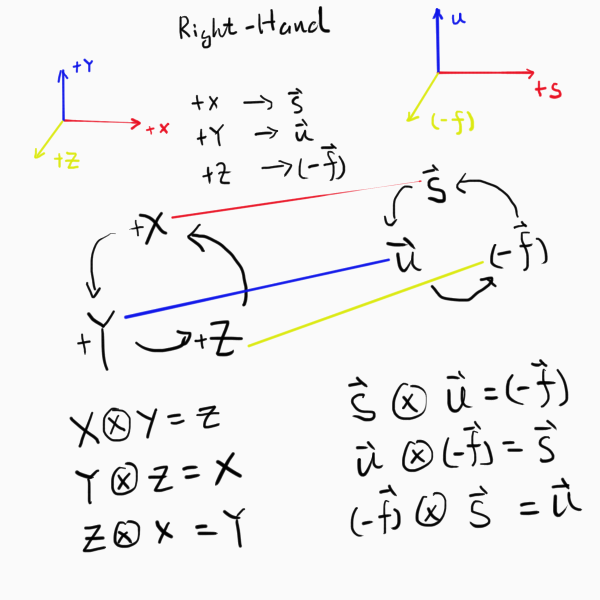 Right-Hand
+Y
+X
+Z
u
+s
(-f)
+x → s⃗
+Y → u⃗
+Z → (-f⃗)
+X
+Y
+Z
s⃗
u⃗
(-f⃗)
X⊗Y=Z
Y⊗Z=X
Z⊗X=Y
s⃗ ⊗ u⃗ = (-f⃗)
u⃗ ⊗ (-f⃗) = s⃗
(-f⃗) ⊗ s⃗ = u⃗